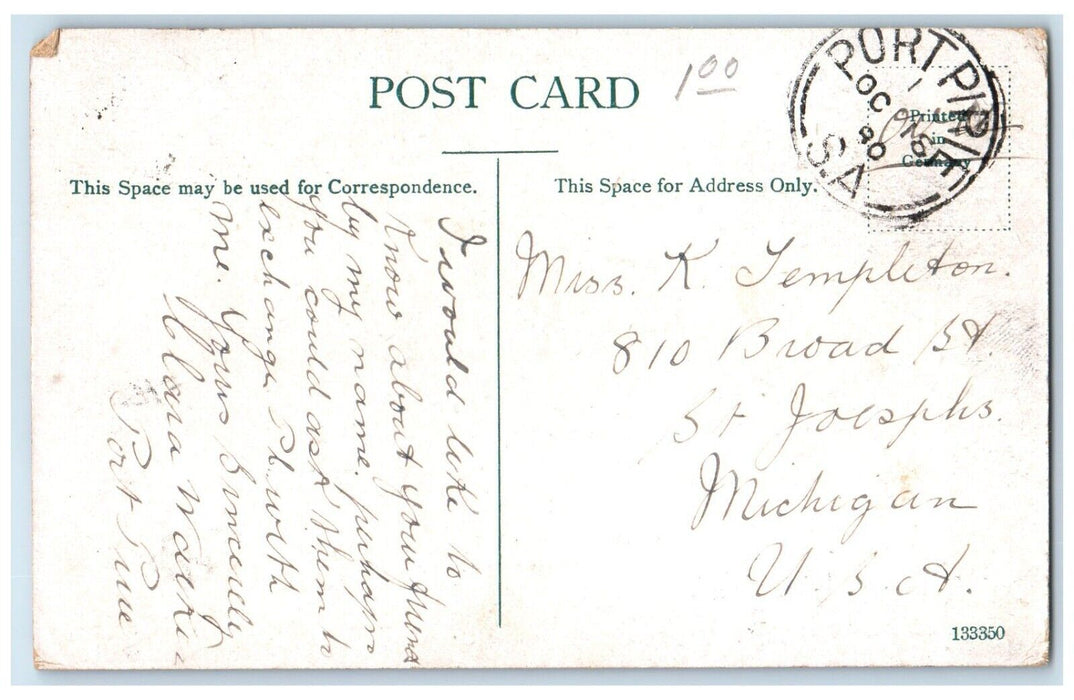 POST CARD
1 00
PORT PIRIE
1
OC 16
S.A
Printed
in
Germany
This Space may be used for Correspondence.
This Space for Address Only.
I would like to
know about your friend
by my name. perhaps
you could ask them to
exchange P.C. with
me. Yours Sincerely
Clara
Port Pirie
Miss. K. Templeton.
810 Broad St.
St Joesphs.
Michigan
U.S.A.
133350